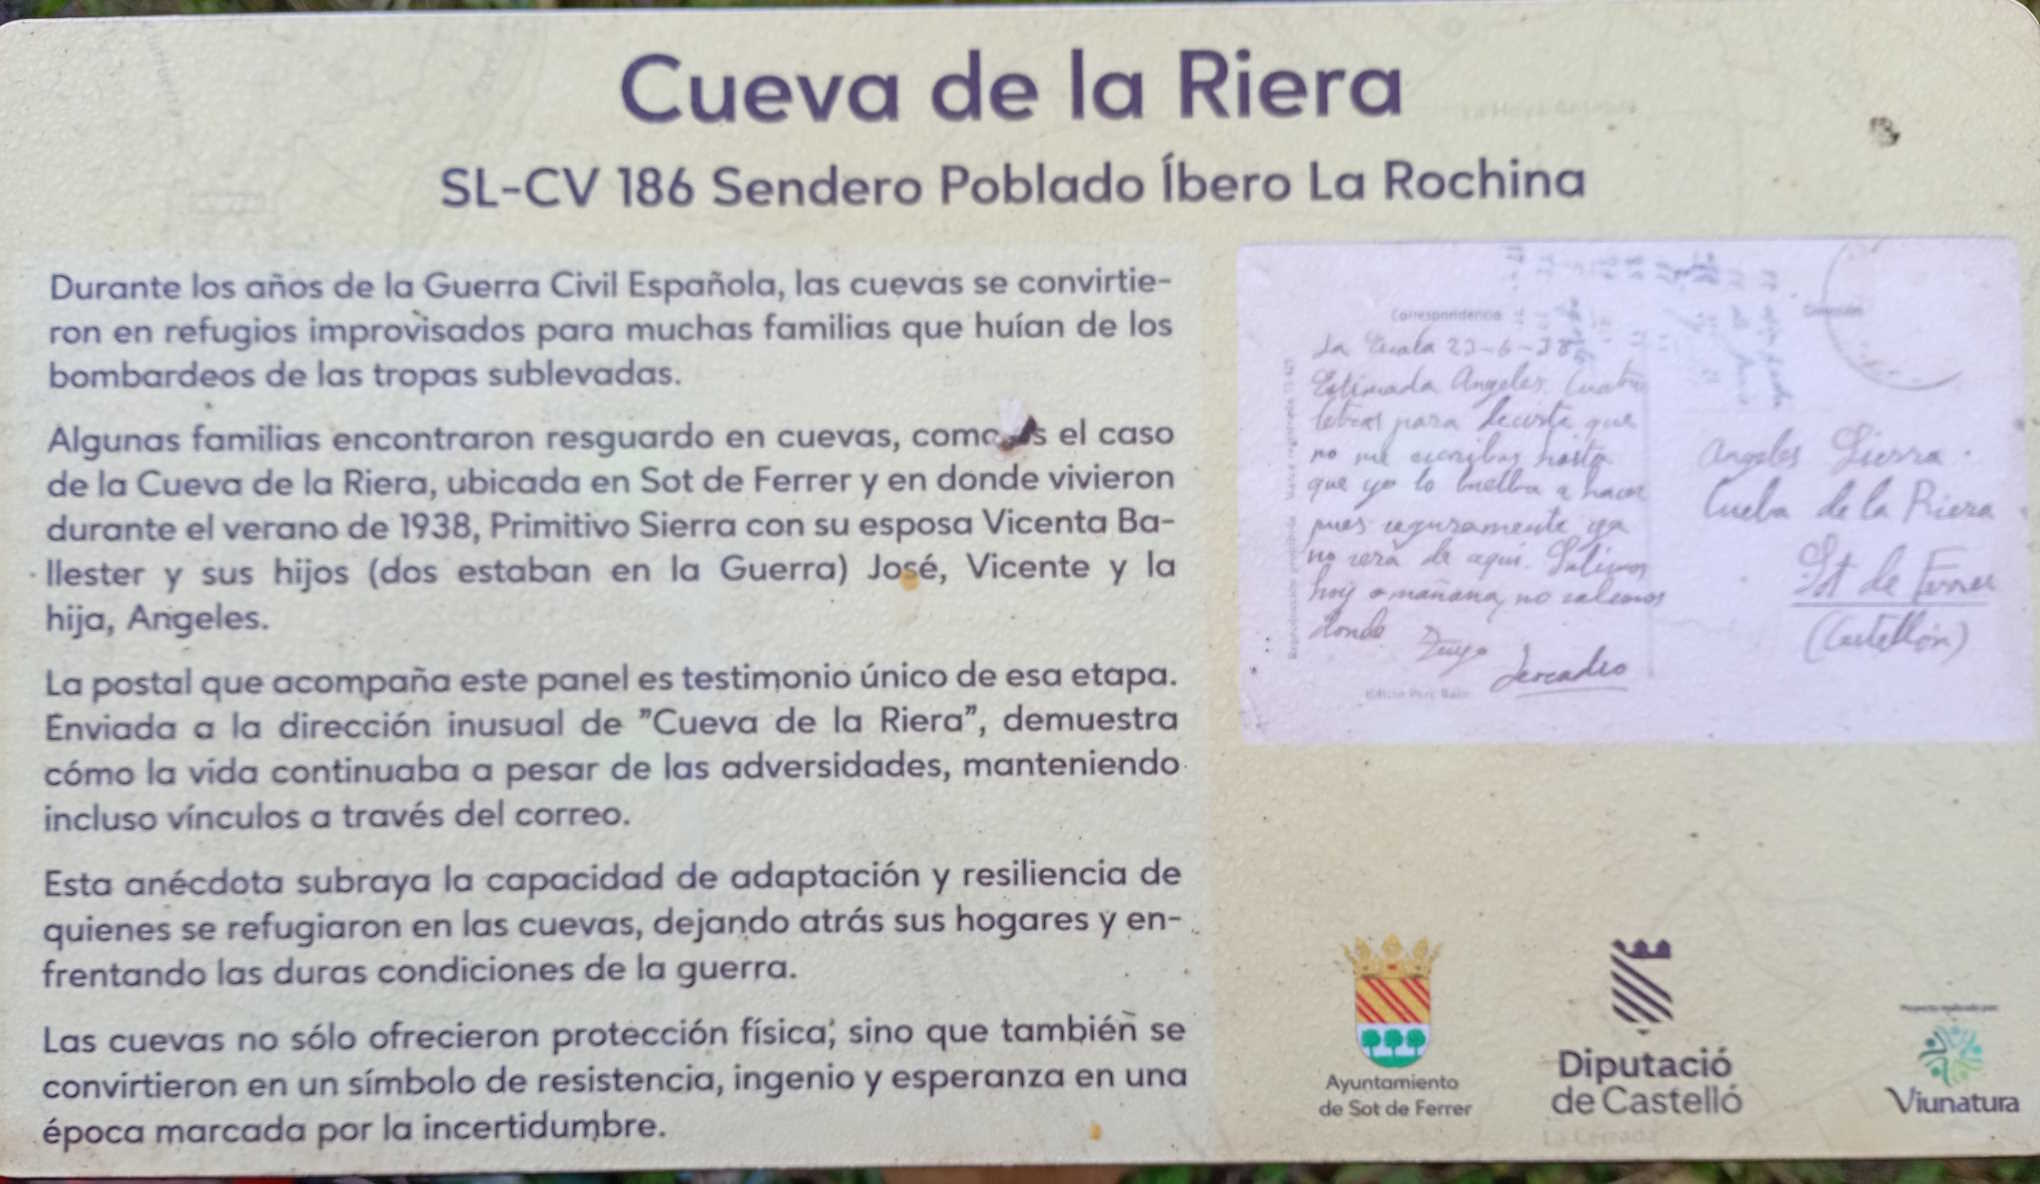 Cueva de la Riera
SL-CV 186 Sendero Poblado Íbero La Rochina
Durante los años de la Guerra Civil Española, las cuevas se convirtie-
ron en refugios improvisados para muchas familias que huían de los
bombardeos de las tropas sublevadas.
Algunas familias encontraron resguardo en cuevas, como es el caso
de la Cueva de la Riera, ubicada en Sot de Ferrer y en donde vivieron
durante el verano de 1938, Primitivo Sierra con su esposa Vicenta Ba-
llester y sus hijos (dos estaban en la Guerra) José, Vicente y la
hija, Angeles.
La postal que acompaña este panel es testimonio único de esa etapa.
Enviada a la dirección inusual de "Cueva de la Riera", demuestra
cómo la vida continuaba a pesar de las adversidades, manteniendo
incluso vínculos a través del correo.
Esta anécdota subraya la capacidad de adaptación y resiliencia de
quienes se refugiaron en las cuevas, dejando atrás sus hogares y en-
frentando las duras condiciones de la guerra.
Las cuevas no sólo ofrecieron protección física, sino que también se
convirtieron en un símbolo de resistencia, ingenio y esperanza en una
época marcada por la incertidumbre.
Correspondencia
La
Estimada Angeles. Cuatro
letras para decirte que
no me escribas hasta
que yo lo buelba a hacer
pues seguramente ya
no será de aqui. Salimos
hoy o mañana, no sabemos
donde
Angeles Sierra
Cueba de la Riera
Sot de Ferrer
(Castellón)
Ayuntamiento
de Sot de Ferrer
Diputació
de Castelló
Viunatura